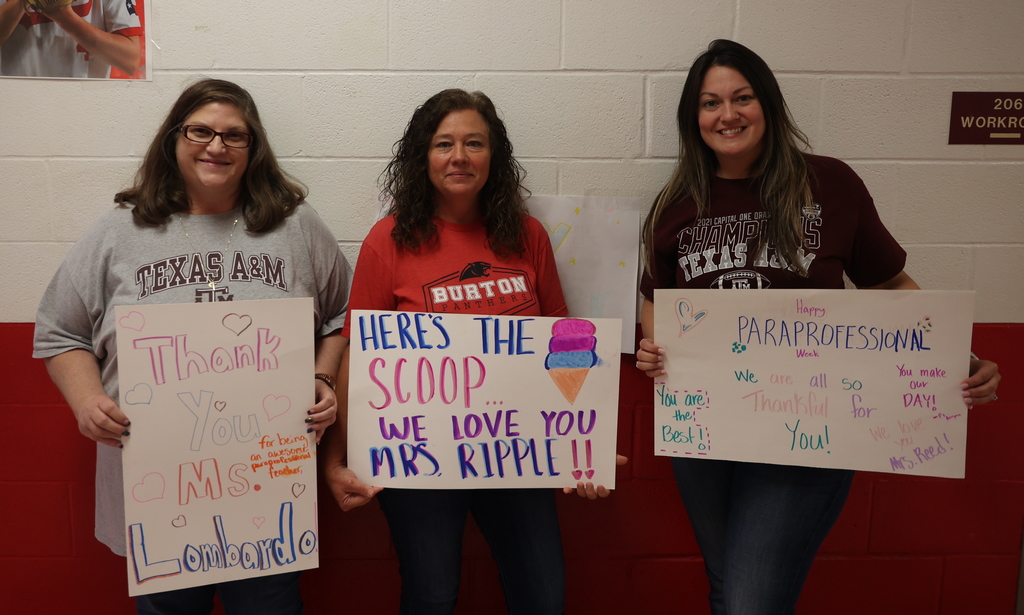 206
WORKRO
TEXAS A&M
Thank
You
for being
an awesome
paraprofessional
teacher.
Ms.
Lombardo.
BURTON
PANTHERS
HERE'S THE
SCOOP...
WE LOVE YOU
MRS. RIPPLE!!
2021 CAPITAL ONE
CHAMPIONS
TEXAS A&M
Happy
PARAPROFESSIONAL
Week
We are all so
Thankful for
You!
You are
the
Best!
You make
our
DAY!
We love
you
Mrs. Reed!